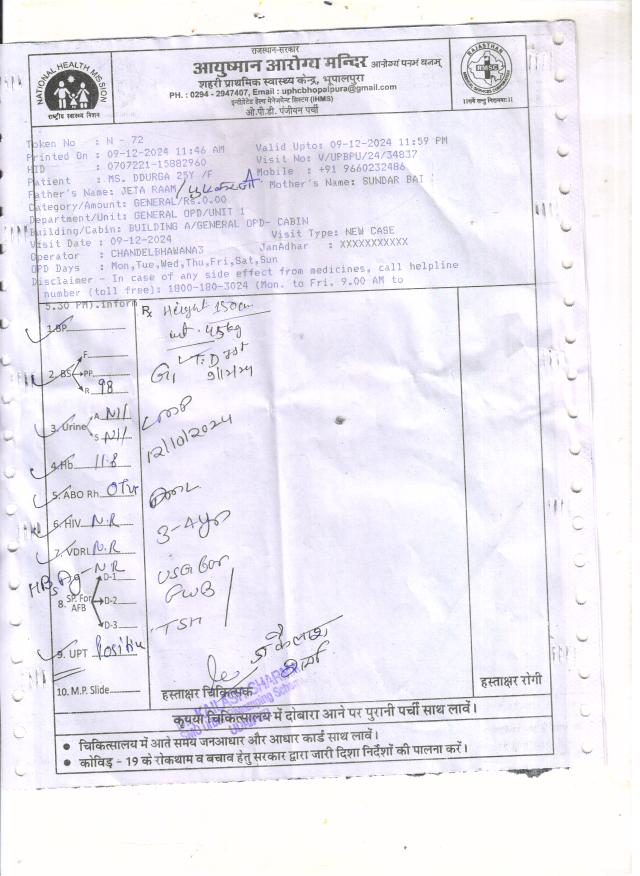 राजस्थान-सरकार
आयुष्मान आरोग्य मन्दिर आरोग्यं परमं धनम्
शहरी प्राथमिक स्वास्थ्य केन्द्र, भूपालपुरा
PH. : 0294 - 2947407, Email : uphcbhopalpura@gmail.com
इन्टीग्रेटेड हैल्थ मैनेजमेन्ट सिस्टम (IHMS)
ओ.पी.डी. पंजीयन पर्ची
NATIONAL HEALTH MISSION
राष्ट्रीय स्वास्थ्य मिशन
RAJASTHAN
RMSC
Token No : N - 72
Printed On : 09-12-2024 11:46 AM Valid Upto: 09-12-2024 11:59 PM
HID : 0707221-15882960 Visit No: V/UPBPU/24/34837
Patient : MS. DDURGA 25Y /F Mobile : +91 9660232486
Father's Name: JETA RAAM Mother's Name: SUNDAR BAI
Category/Amount: GENERAL/Rs.0.00
Department/Unit: GENERAL OPD/UNIT 1
Building/Cabin: BUILDING A/GENERAL OPD- CABIN
Visit Date : 09-12-2024 Visit Type: NEW CASE
Operator : CHANDELBHAWANA3 JanAdhar : XXXXXXXXXXX
OPD Days : Mon,Tue,Wed,Thu,Fri,Sat,Sun
Disclaimer - In case of any side effect from medicines, call helpline
number (toll free): 1800-180-3024 (Mon. to Fri. 9.00 AM to
5.30 PM).Inform
Rx Height 150cm
wt. 45kg
1.BP
2. BS F.
PP
R 98
G1 T.D 1st
9/12/24
3. Urine A Nil
S Nil
LMP
12/10/2024
4.Hb 11.8
5. ABO Rh. O+ve
6. HIV N.R
3-4 yr
7. VDRL N.R
HBsAg - N.R
USG for
FWB
8. SP. For AFB D-1
D-2
D-3
TSH
9. UPT Positive
10. M.P. Slide
हस्ताक्षर चिकित्सक
हस्ताक्षर रोगी
कृपया चिकित्सालय में दोबारा आने पर पुरानी पर्ची साथ लावें।
● चिकित्सालय में आते समय जनआधार और आधार कार्ड साथ लावें।
● कोविड - 19 के रोकथाम व बचाव हेतु सरकार द्वारा जारी दिशा निर्देशों की पालना करें।